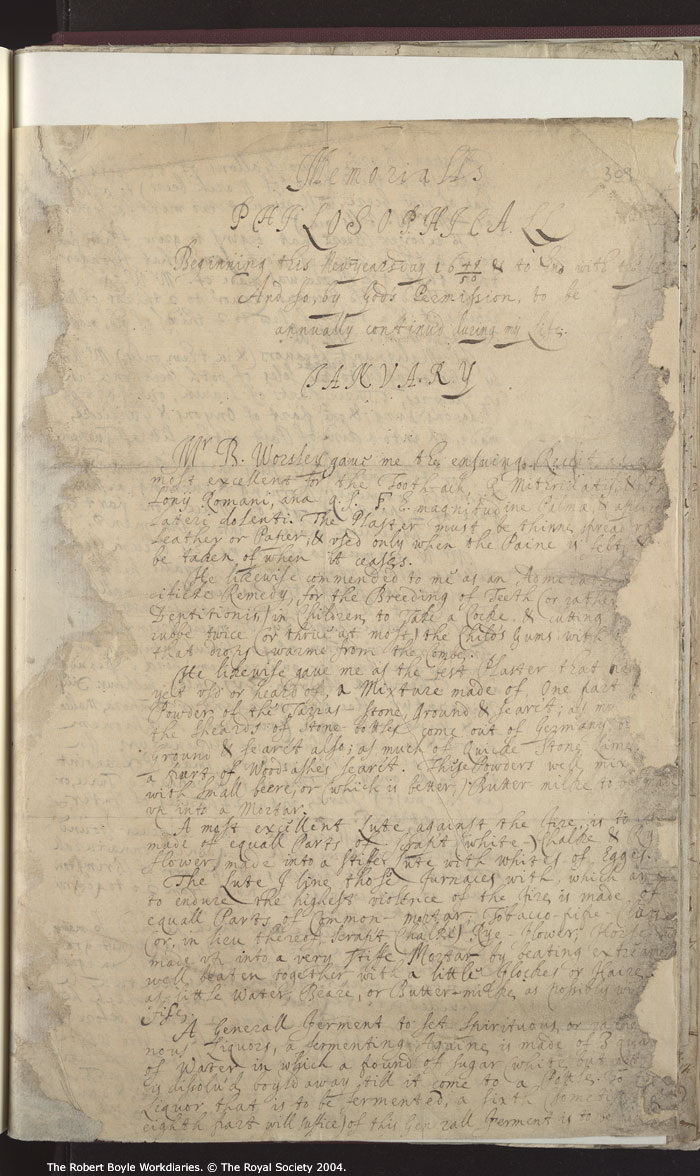 308
Memorialls
PHILOSOPHICALL
Beginning this Newyearsday 1649/50 & to End with
And so by Gods Permission, to be
annually continu'd during my Life.
IANVARY
Mr B. Worsley gave me the ensuing
most excellent for the Tooth-ach,
magnitudine Palmæ, &
lateri dolenti. The Plaster must be thinne spread
Leather or Paper, & vsed only when the Paine is felt, &
be taken of when it ceases.
He likewise commended to me as an
Remedy, for the Breeding of Teeth (or rather
Dentitionis,) in Children, to Take a Cocke, & cutting
twice (or thrice at most) the Childs Gums with
that drops warme from the Combe.
He likewise gave me as the best Plaster that
yet vs'd or heard of, a Mixture made of, One part
Powder of the Tarras-stone, Ground & searc't; as
the Sheards of Stone-bottles come out of Germany
Ground & searc't also; as much of Quicke Stone Lime
a part of Wood ashes searc't. These Powders well
with small beere, or (which is better,) Butter milke to be
vp into a Mortar.
A most excellent Lute against the Fire, is to
made of equall Parts of (white-) Chalke &
flower, made into a stiffe Lute with whites of Egges.
The Lute I line those Furnaces with, which are
to endure the highest violence of the Fire, is made of
equall Parts of Common-mortar, Tobacco-pipe-
(or, in lieu thereof, Chalke) Rye-flower,
made vp into a very stiffe Mortar by beating
well beaten together with a little Flockes or Haire
as little Water, Beare, or Butter-milke as possibly
A Generall Ferment to set spirituous, or
Liquors, a fermenting Againe, is made of 3
of Water, in which a pound of sugar
is dissolu'd boyld away till it come to a Pottle.
Liquor that is to be fermented, a sixth
eighth part will suffice) of this Generall Ferment is to be
The Robert Boyle Workdiaries. © The Royal Society 2004.